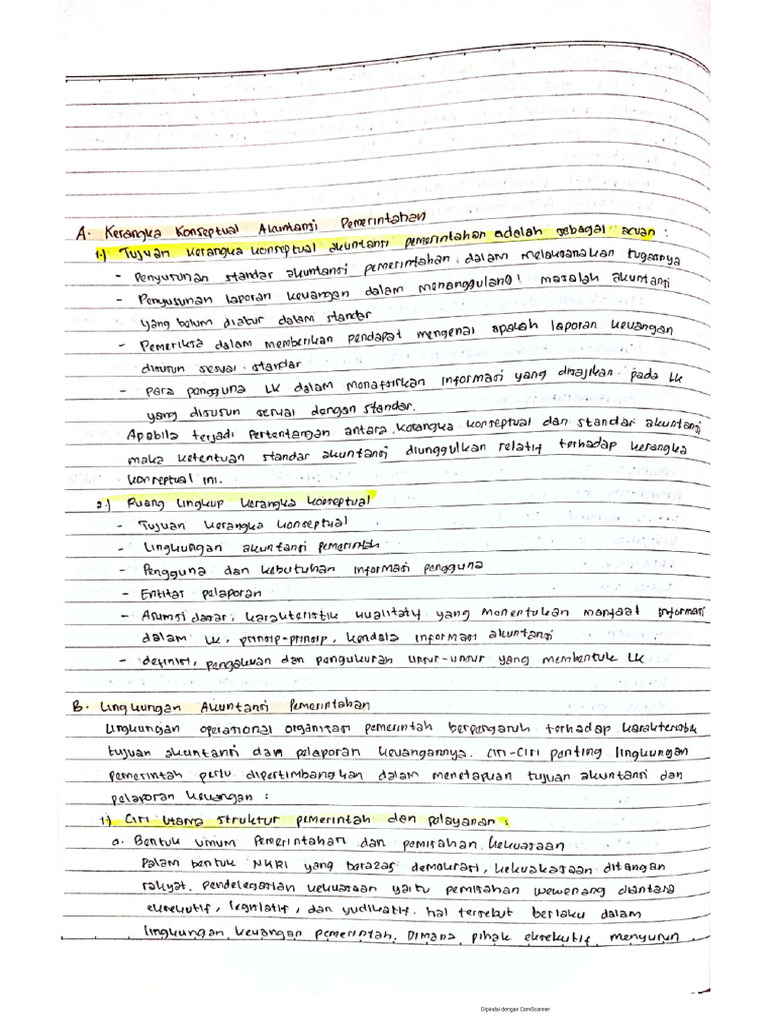 A. Kerangka Konseptual Akuntansi Pemerintahan
1.) Tujuan kerangka konseptual akuntansi pemerintahan adalah sebagai acuan :
- Penyusunan standar akuntansi pemerintahan dalam melaksanakan tugasnya
- Penyusunan laporan keuangan dalam menanggulangi masalah akuntansi
yang belum diatur dalam standar
- Pemeriksa dalam memberikan pendapat mengenai apakah laporan keuangan
disusun sesuai standar
- para pengguna LK dalam menafsirkan informasi yang disajikan pada LK
yang disusun sesuai dengan standar.
Apabila terjadi pertentangan antara kerangka konseptual dan standar akuntansi
maka ketentuan standar akuntansi diunggulkan relatif terhadap kerangka
konseptual ini.
2.) Ruang lingkup kerangka konseptual
- Tujuan kerangka konseptual
- Lingkungan akuntansi pemerintah
- Pengguna dan kebutuhan informasi pengguna
- Entitas pelaporan
- Asumsi dasar, karakteristik kualitatif yang menentukan manfaat informasi
dalam LK, prinsip-prinsip, kendala informasi akuntansi
- definisi, pengakuan dan pengukuran unsur-unsur yang membentuk LK
B. Lingkungan Akuntansi Pemerintahan
Lingkungan operasional organisasi pemerintah berpengaruh terhadap karakteristik
tujuan akuntansi dan pelaporan keuangannya. Ciri-ciri penting lingkungan
pemerintah perlu dipertimbangkan dalam menetapuan tujuan akuntansi dan
pelaporan keuangan :
1.) Ciri utama struktur pemerintah dan pelayanan :
a. Bentuk umum Pemerintahan dan pemisahan kekuasaan
Dalam bentuk NKRI yang berazas demokrasi, kekuakasaan ditangan
rakyat. pendelegasian kekuasaan yaitu pemisahan wewenang diantara
eksekutif, legislatif, dan yudikatif. hal tersebut berlaku dalam
lingkungan keuangan pemerintah. Dimana pihak eksekutif menyusun
Dipindai dengan CamScanner